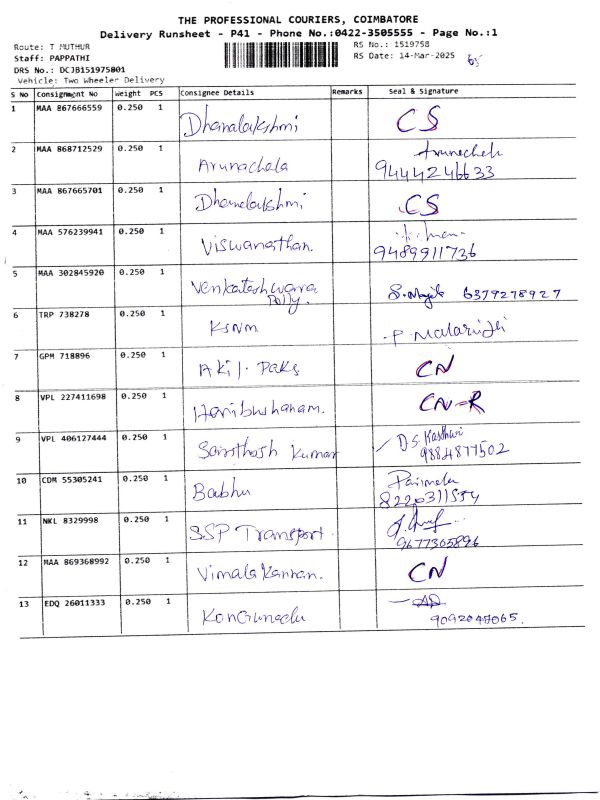 THE PROFESSIONAL COURIERS, COIMBATORE
Delivery Runsheet - P41 - Phone No.:0422-3505555 - Page No.:1
Route: T MUTHUR
RS No.: 1519758
Staff: PAPPATHI
RS Date: 14-Mar-2025
65
DRS No.: DCJB151975801
Vehicle: Two Wheeler Delivery
S No Consignment No Weight PCS Consignee Details Remarks Seal & Signature
1 MAA 867666559 0.250 1 Dhanalakshmi CS
2 MAA 868712529 0.250 1 Arunachala Arunachala
9444246633
3 MAA 867665701 0.250 1 Dhanalakshmi CS
4 MAA 576239941 0.250 1 Viswanathan.
9489911736
5 MAA 302845920 0.250 1 Venkateshwara
Polly. 6379278927
6 TRP 738278 0.250 1 KSNM
7 GPM 718896 0.250 1 Akil. Paks CN
8 VPL 227411698 0.250 1 Haribhushanam. CN-R
9 VPL 406127444 0.250 1 Santhosh Kumar D.S. Kasthuri
9884877502
10 CDM 55305241 0.250 1 Babhu Parimala
8220311554
11 NKL 8329998 0.250 1 SSP Transport.
9677365896
12 MAA 869368992 0.250 1 Vimala Kannan. CN
13 EDQ 26011333 0.250 1
9092047065.